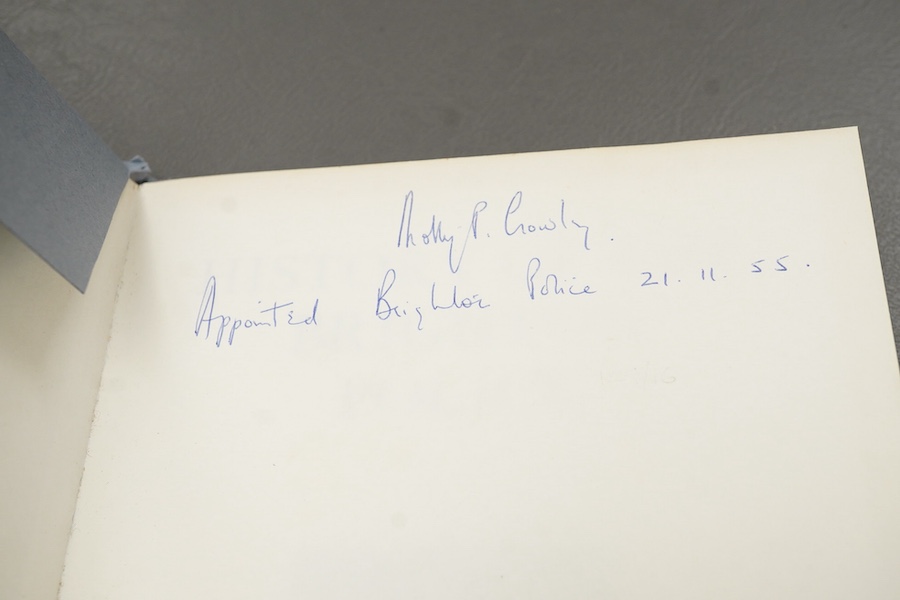 Molly P. Crowley.
Appointed Brighton Police 21. 11. 55.